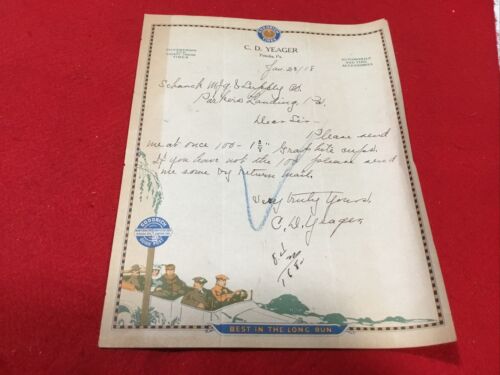 GOODRICH
TIRES
C. D. YEAGER
SILVERTOWN
AND
SAFETY TREAD
TIRES
AUTOMOBILE
AND TIRE
ACCESSORIES
Jan. 28/18
Schenck Mfg. & Supply Co.
Parkers Landing, Pa.
Dear Sir-
Please send
me at once 100- 1 5/8" Graphite cups.
If you have not the 100 please send
me some by return mail.
Very truly Yours,
C. D. Yeager
GOODRICH
BEST IN THE LONG RUN